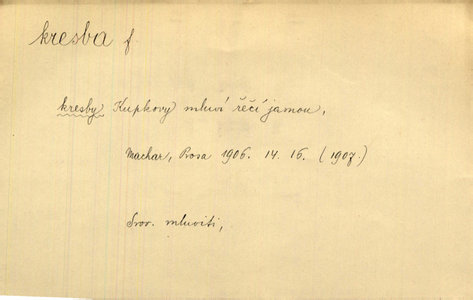 kresba f.
kresby Kupkovy mluví řečí jamou,
Machar, Prosa 1906. 14. 16. (1907.)
Srov. mluviti,